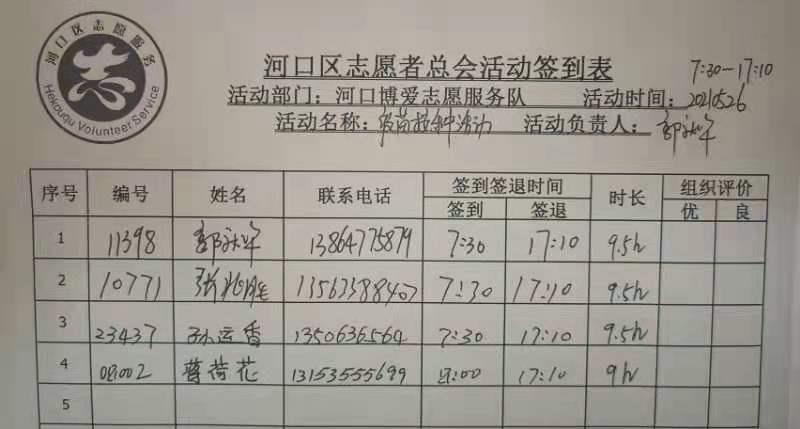 河口区志愿服务
志
Hekouqu Volunteer Service
河口区志愿者总会活动签到表 7:30-17:10
活动部门：河口博爱志愿服务队 活动时间：20210526
活动名称：疫苗接种活动 活动负责人：
序号 编号 姓名 联系电话 签到签退时间 时长 组织评价
签到 签退 优 良
1 11398 13864775879 7:30 17:10 9.5h
2 10771 张兆胜 13563388407 7:30 17:10 9.5h
3 23437 孙运香 1350636564 7:30 17:10 9.5h
4 09002 荷花 13153555699 8:00 17:10 9h
5